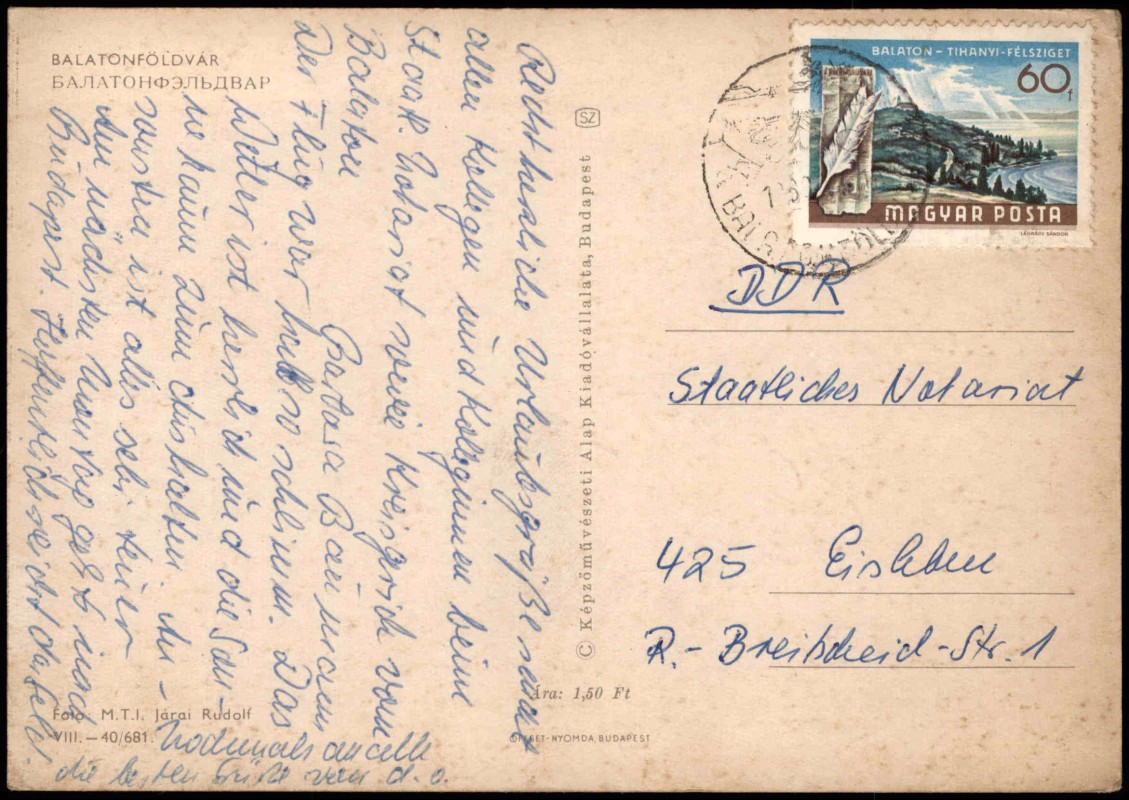 BALATONFÖLDVÁR
БАЛАТОНФЭЛЬДВАР
Recht herzliche Urlaubsgrüße sendet
allen Kollegen und Kolleginnen beim
Staatl. Notariat sowie Kreisgericht vom
Balaton
Barbara Baumann
Der Flug war halb so schlimm. Das
Wetter ist herrlich und die Son-
ne kaum zum aushalten. An-
sonsten ist alles sehr teuer
Am nächsten Uhr geht's nach
Budapest. Hoffentlich seid
Nochmals an alle
die besten Grüße von d. o.
Foto: M.T.I. Járai Rudolf
VIII. — 40/681.
SZ
© Képzőművészeti Alap Kiadóvállalata, Budapest
Ára: 1,50 Ft
OFFSET-NYOMDA, BUDAPEST
BALATON – TIHANYI-FÉLSZIGET
60f
MAGYAR POSTA
LÉGRÁDY SÁNDOR
BALATONFÖLD
DDR
Staatliches Notariat
425 Eisleben
R.- Breitscheid-Str. 1